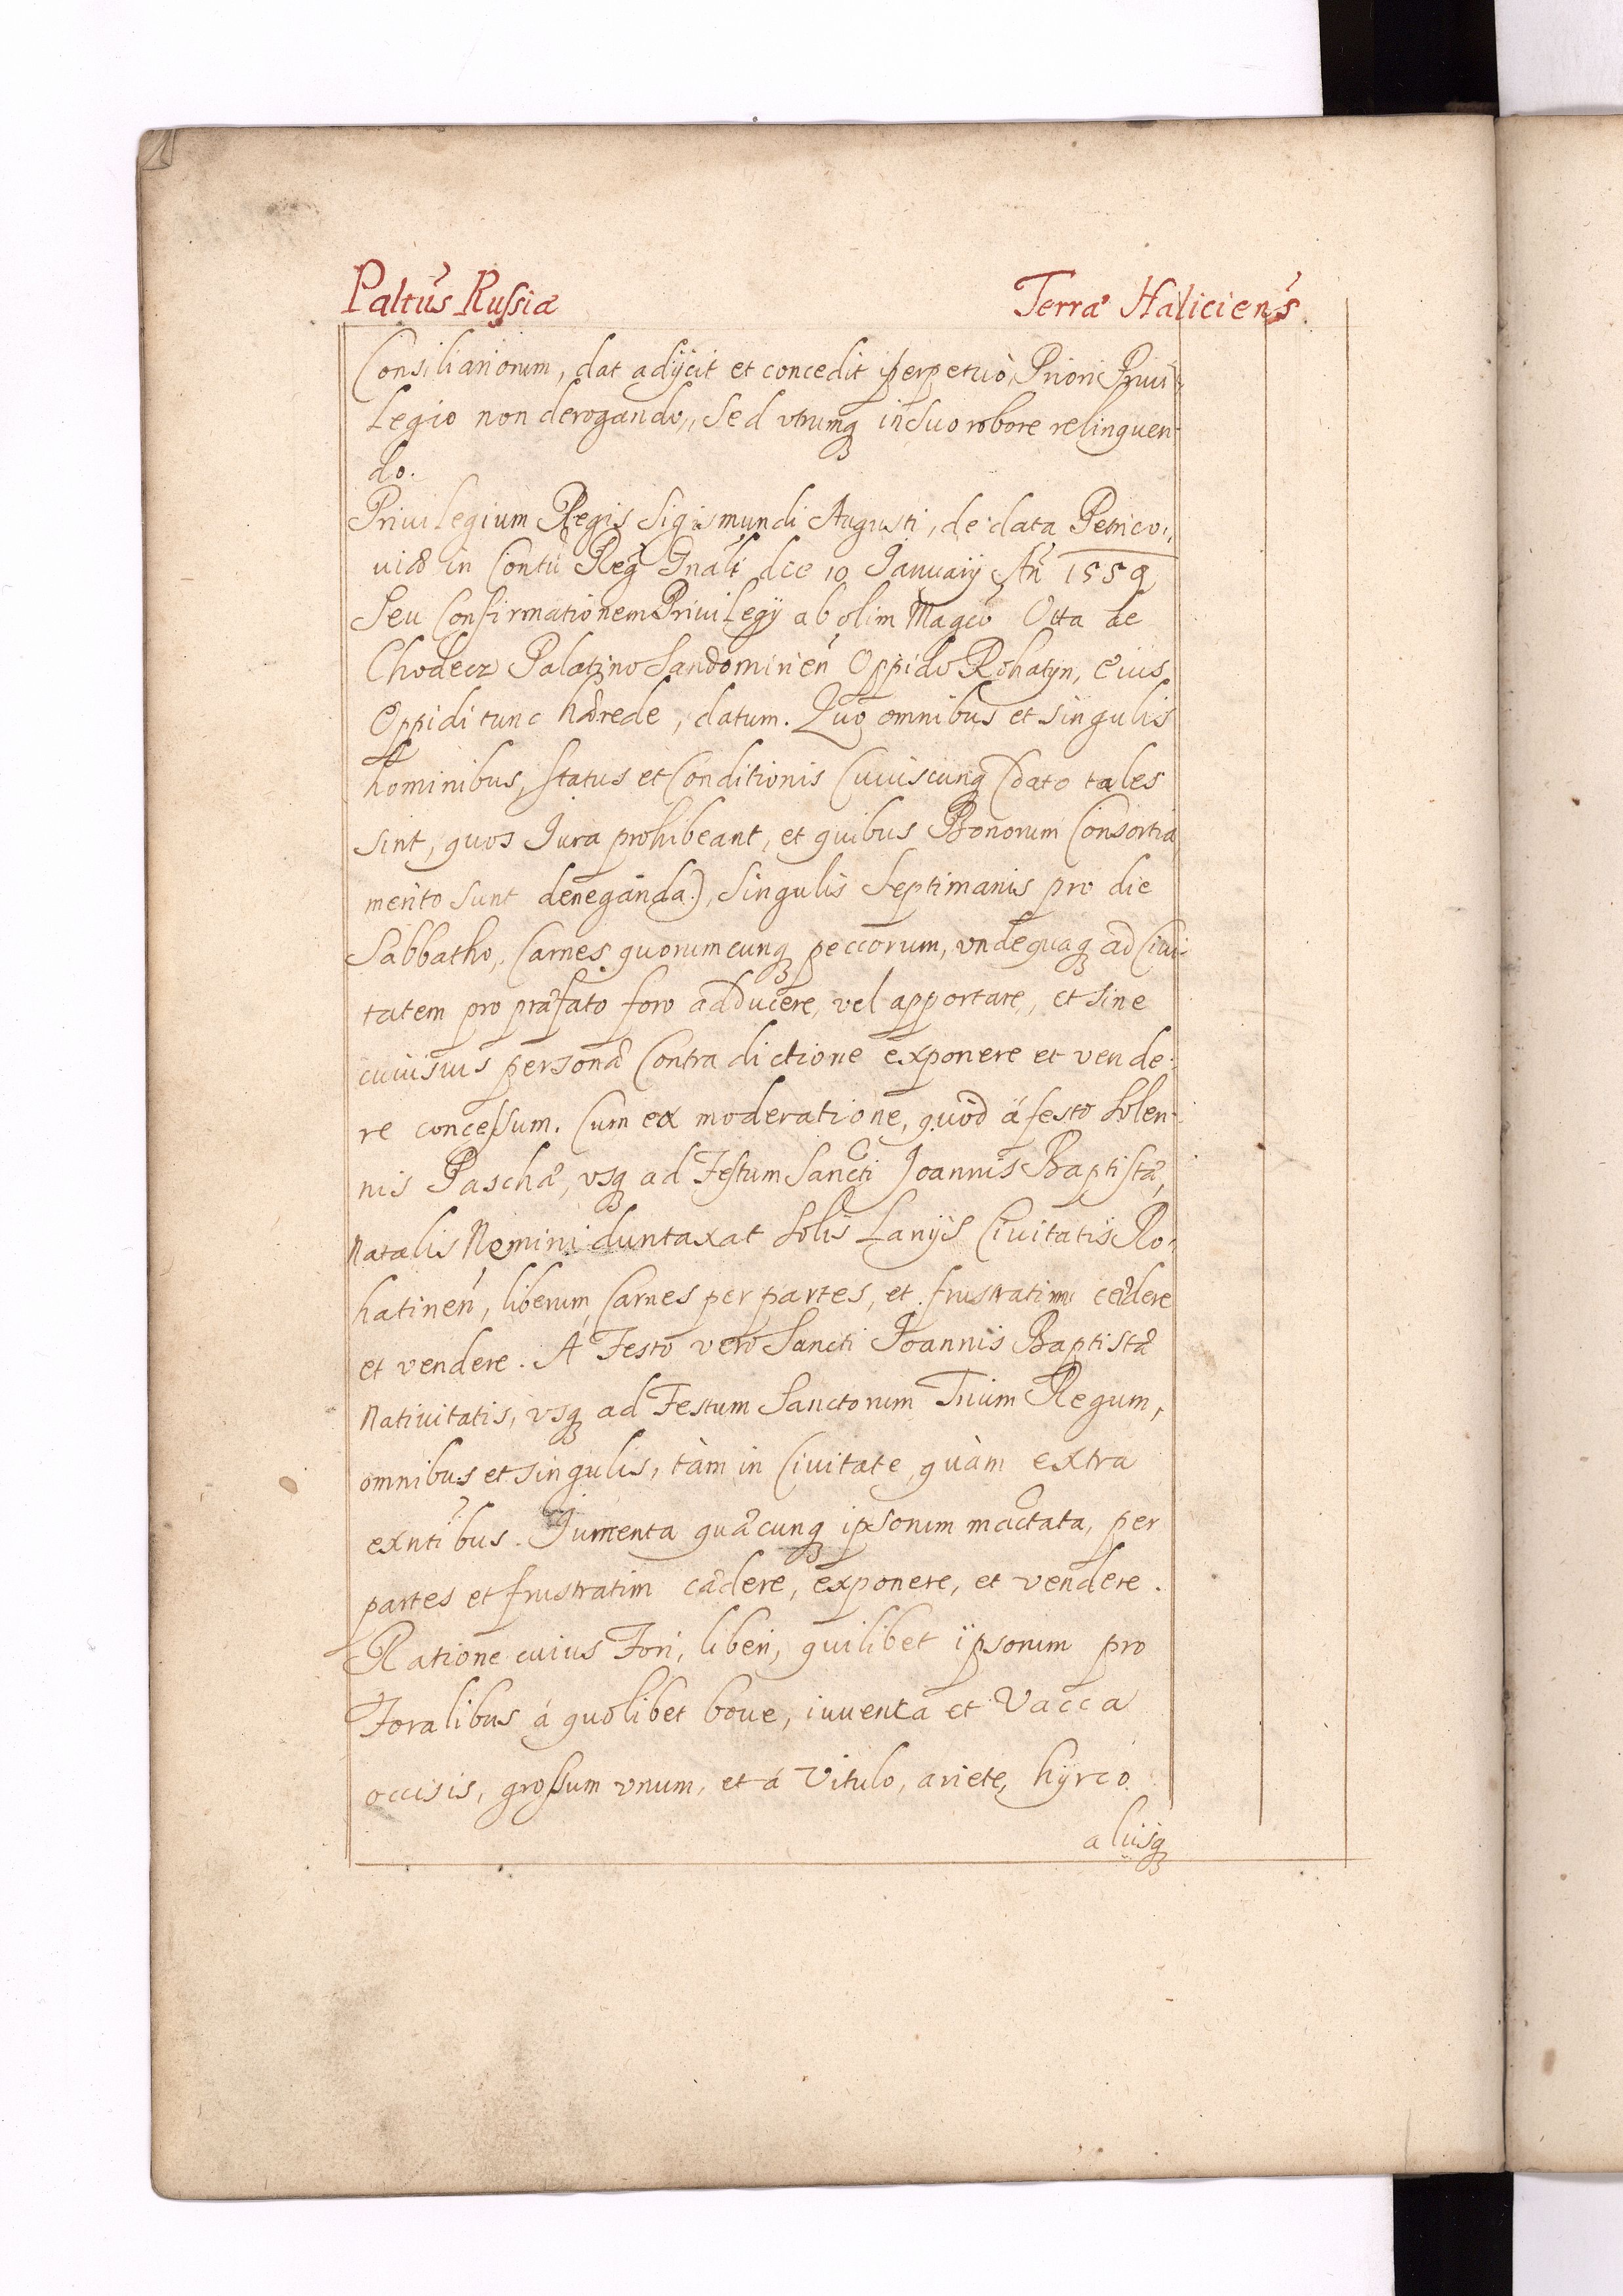 Paltus Russiæ Terræ Haliciens
Consiliariorum, dat adijcit et concedit perpetuò, Priori Priui-
legio non derogando, Sed vtrumq in suo robore relinquen-
do.
Priuilegium Regis Sigismundi Augusti, de data Petrico-
uiæ in Contu Reg Gnali die 10 Januarij An 1559
Seu Confirmationem Priuilegij ab olim Magco Otta de
Chodecz Palatino Sandominien Oppido Rohatyn, eius
Oppidi tunc hærede, datum. Quo omnibus et singulis
hominibus, status et Conditionis Cuiuscunq (dato tales
sint, quos Jura prohibeant, et quibus Bonorum Consortia
merito sunt deneganda), Singulis Septimanis pro die
Sabbatho, Carnes quorumcunq peccorum, vndequaq ad Ciui-
tatem pro præfato foro adducere, vel apportare, et sine
cuiusuis personæ Contradictione exponere et vende-
re concessum. Cum ea moderatione, quòd á festo solen-
nis Paschæ, vsq ad Festum Sancti Joannis Baptistæ,
Natalis Nemini duntaxat solis Lanijs Ciuitatis Ro-
hatinen, liberum Carnes per partes, et frustratim cædere
et vendere. A Festo vero Sancti Joannis Baptistæ
Natiuitatis, vsq ad Festum Sanctorum Trium Regum,
omnibus et singulis, tàm in Ciuitate quàm extra
exntibus. Jumenta quæcunq ipsorum mactata, per
partes et frustratim cædere, exponere, et vendere.
Ratione cuius Fori, liberi, quilibet ipsorum pro
Foralibus á quolibet boue, iuuenca et Vacca
occisis, grossum vnum, et á Vitulo, ariete, hyrco
alijsq